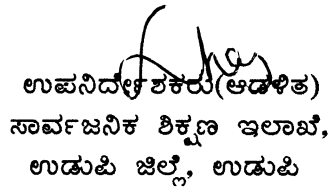 ಉಪನಿರ್ದೇಶಕರು(ಆಡಳಿತ)
ಸಾರ್ವಜನಿಕ ಶಿಕ್ಷಣ ಇಲಾಖೆ,
ಉಡುಪಿ ಜಿಲ್ಲೆ, ಉಡುಪಿ